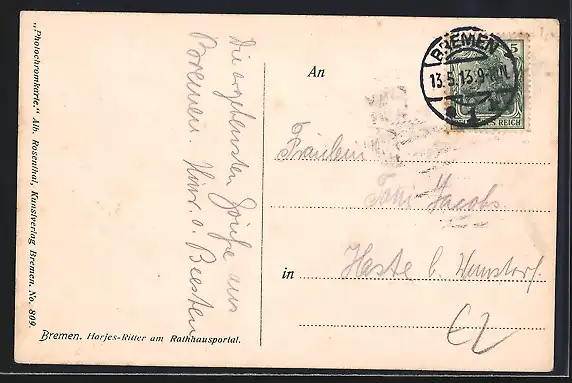 „Photochromkarte.“ Alb. Rosenthal, Kunstverlag Bremen. No. 809.
Die ergebensten Grüße aus
Bremen. Hinr. v. Beesten
Bremen. Harjes-Ritter am Rathhausportal.
An
BREMEN
13.5.13.9-10N.
1
5
DEUTSCHES REICH
Fräulein
Jacobs
in
Haste b. Wunstorf.